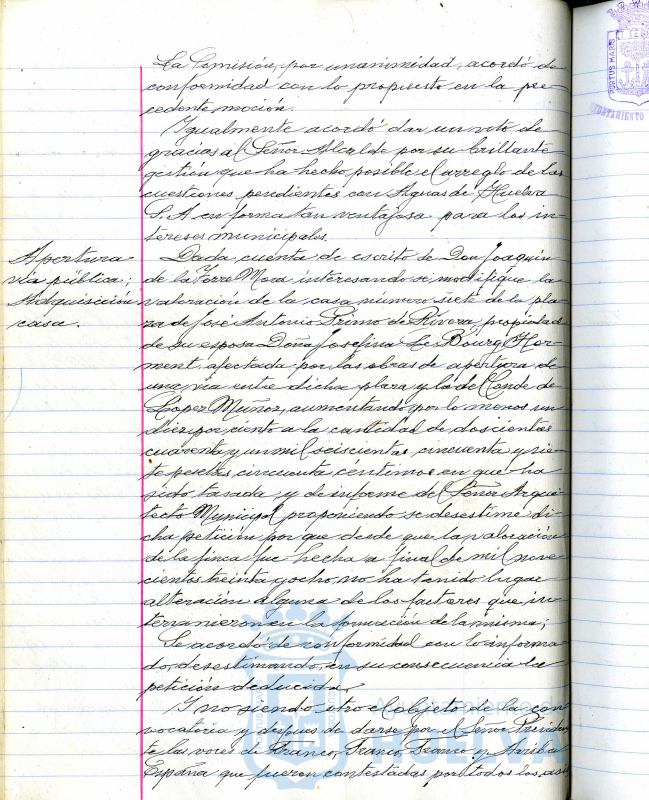 La Comisión, por unanimidad, acordó de
conformidad con lo propuesto en la pre-
cedente moción.
Igualmente acordó dar un voto de
gracias al Señor Alcalde por su brillante
gestión que ha hecho posible el arreglo de las
cuestiones pendientes con Aguas de Huelva
S. A. en forma tan ventajosa para los in-
tereses municipales.
Apertura
vía pública;
Adquisición
casa.
Dada cuenta de escrito de Don Joaquín
de la Torre Mora, interesando se modifique la
valoración de la casa número siete de la pla-
za de José Antonio Primo de Rivera, propiedad
de su esposa Doña Josefina Le Bourg Her-
ment, afectada por las obras de apertura de
una vía entre dicha plaza y la de Conde de
López Muñoz, aumentando por lo menos un
diez por ciento a la cantidad de doscientas
cuarenta y un mil seiscientas cincuenta y sie-
te pesetas cincuenta céntimos en que ha
sido tasada, y de informe del Señor Arqui-
tecto Municipal proponiendo se desestime di-
cha petición por que desde que la valoración
de la finca fue hecha a final de mil nove-
cientos treinta y ocho, no ha tenido lugar
alteración alguna de los factores que in-
tervinieron en la formación de la misma;
Se acordó de conformidad con lo informa-
do, desestimando, en su consecuencia la
petición deducida.
Y no siendo otro el objeto de la con-
vocatoria y después de darse por el Señor Presiden-
te las voces de Franco, Franco, Franco y Arriba
España que fueron contestadas por todos los asis-
PORTUS MARIS
AYUNTAMIENTO
Ayuntamiento de
HUELVA